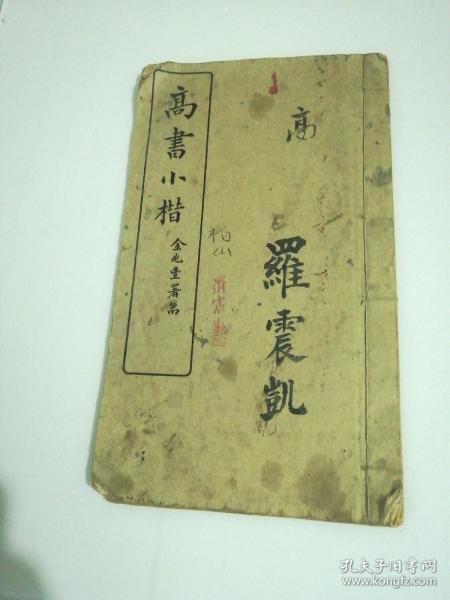 高書小楷
金兆豐署耑
高
柏仙
羅震凱
羅震凱
孔夫子旧书网
www.kongfz.com